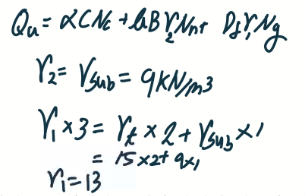 Qu = αCNc + 1/2 B γ2 Nr + Df γ1 Nq
γ2 = γsub = 9kN/m3
γ1 × 3 = γt × 2 + γsub × 1
= 15 × 2 + 9 × 1
γ1 = 13